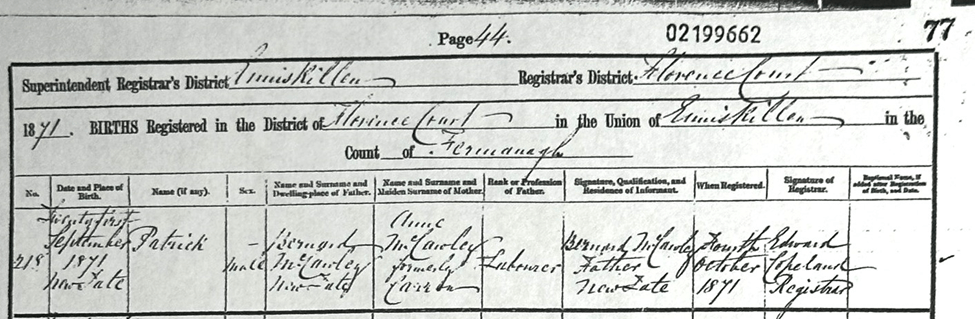 Page 44. 02199662 77
Superintendent Registrar's District Enniskillen Registrar's District Florence Court
1871. BIRTHS Registered in the District of Florence Court in the Union of Enniskillen in the
Count of Fermanagh
No. Date and Place of Birth. Name (if any). Sex. Name and Surname and Dwelling-place of Father. Name and Surname and Maiden Surname of Mother. Rank or Profession of Father. Signature, Qualification, and Residence of Informant. When Registered. Signature of Registrar. Baptismal Name, if added after Registration of Birth, and Date.
Twenty first Anne
September Patrick – Bernard McCawley Bernard McCawley Fourth Edward
218 1871 Male McCawley formerly Labourer Father October Copeland
New Tate New Tate Carron New Tate 1871 Registrar